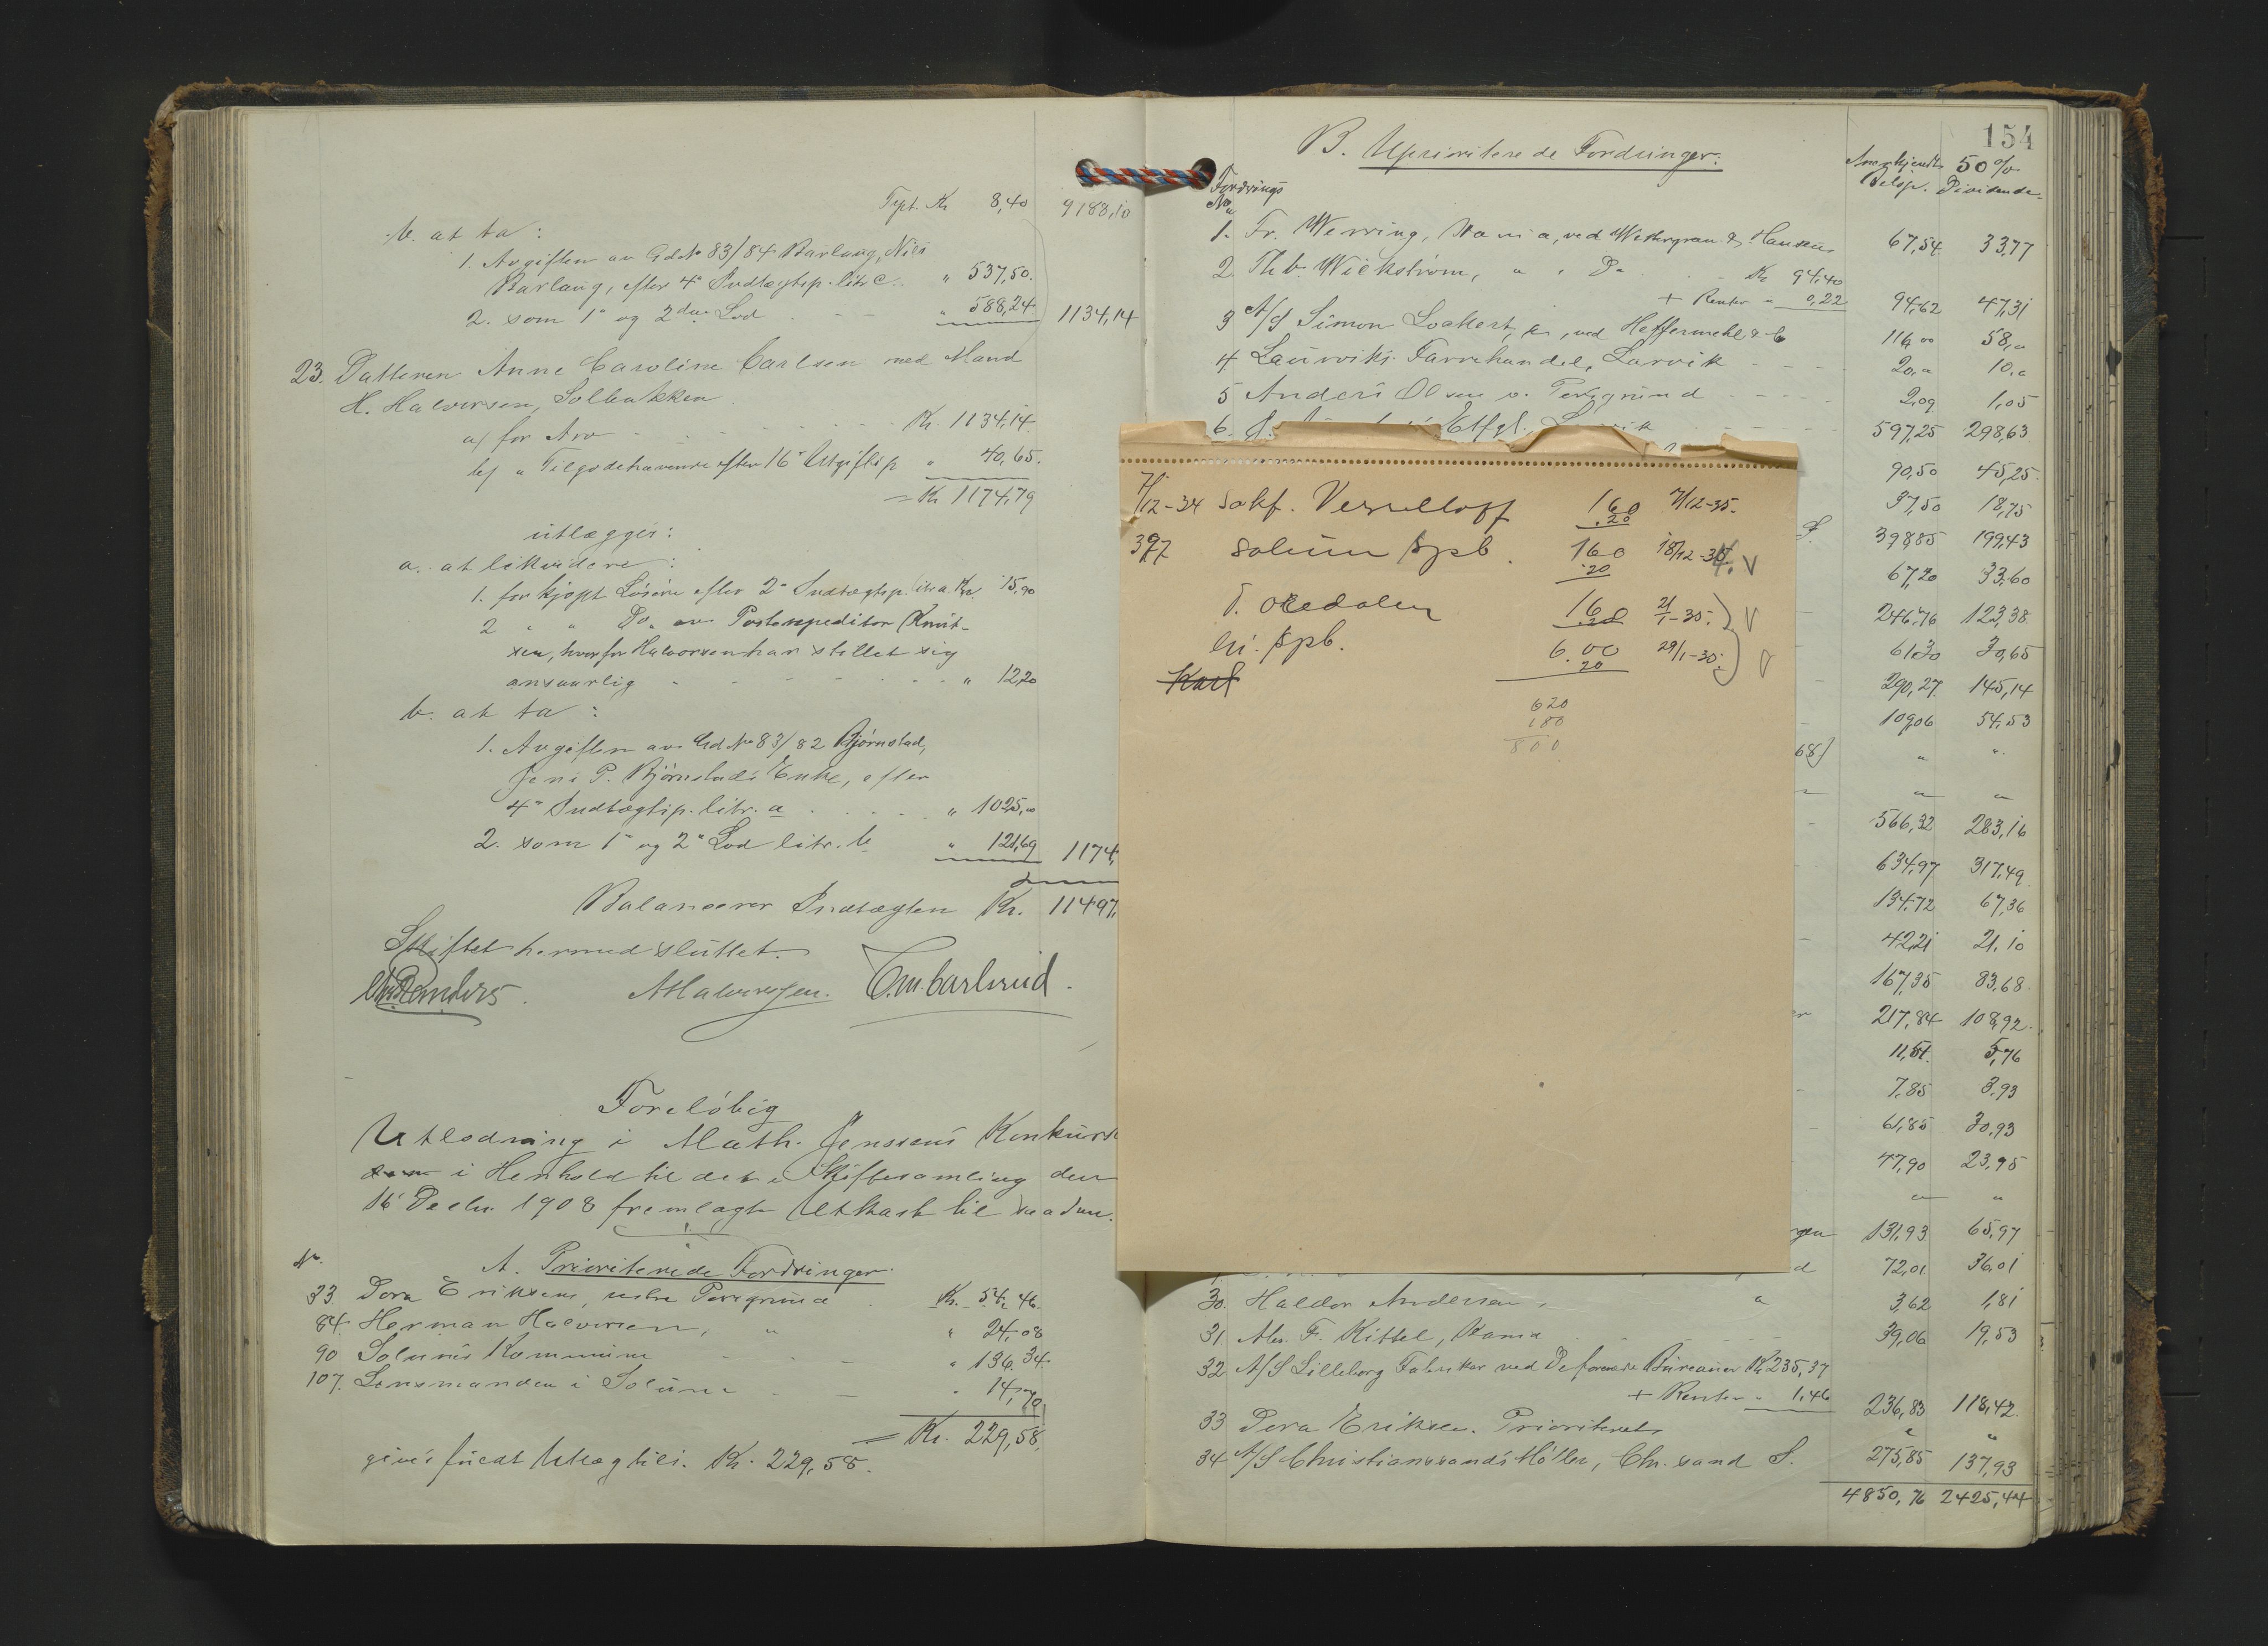 Tspt. Kr. 8,40 9188,10
b. at ta:
1. Avgiften av Gd No 83/84 Barlaug, Nils
Barlaug, efter 4de Indtægtsp. litr. c. " 537,50.
2. som 1ste og 2den Lod " 588,24 1134,14
23. Datteren Anne Caroline Carlsen med Mand
H. Halvorsen, Solbakken
a) for Arv Kr. 1134,14.
b) " Tilgodehavende efter 16de Utgiftsp. " 40,65.
= Kr. 1174,79
utlægges:
a. at likvidere:
1. for kjøpt Løsøre efter 2den Indtægtsp. litr. a. Kr. 15,90
2 " " Do. av Postexpeditør Knut-
sen, hvorfor Halvorsen har stillet sig
ansvarlig " 12,20
b. at ta:
1. Avgiften av Gd No 83/82 Bjørnstad,
Jens P. Bjørnstads Enke, efter
4de Indtægtsp. litr. a " 1025,00
2. som 1ste og 2den Lod litr. b " 121,69 1174,
Balancerer Indtægten Kr. 11497,
Skiftet hermed sluttet.
AHalvorsen. C.M. Carlsrud.
Foreløbig
Utlodning i Math. Jenssens Konkurs
i Henhold til det i Skiftesamling den
16de Decbr. 1908 fremlagte Utkast til saadan.
A. Prioriterede Fordringer.
No.
33 Dora Eriksen, vestre Porsgrund Kr. 54,46.
84. Herman Halvorsen, " " 24,08
90 Solums Kommune " 136,34.
107. Lensmanden i Solum " 14,70
= Kr. 229,58.
gives fuldt Utlæg til: Kr. 229,58.
154
B. Uprioriterede Fordringer:
Fordrings No.
Anerkjendt Beløp. 50% Dividende.
1. Fr. Werring, Kania, ved Westergren & Hansen 67,54 33,77
2. Thb. Wickstrøm, " " Do Kr. 94,40
+ Renter " 0,22 94,62 47,31
3 A/S Simon Lockert, ved Heffermehl & Co 116,00 58,"
4 Laurviks Farvehandel, Larvik 20," 10,"
5 Anders Olsen v. Porsgrund 2,09 1,05
6. 597,25 298,63
90,50 45,25
37,50 18,75
398,85 199,43
67,20 33,60
246,76 123,38
61,30 30,65
290,27 145,14
109,06 54,53
68) " "
" "
566,32 283,16
634,97 317,49
134,72 67,36
42,21 21,10
167,35 83,68
217,84 108,92
11,51 5,76
7,85 3,93
61,85 30,93
47,90 23,95
" "
131,93 65,97
72,01 36,01
30. Haldor Andersen, " 3,62 1,81
31. Alex. F. Kittel, Kania 39,06 19,53
32 A/S Lilleborg Fabriker ved De forenede Bureauer Kr 235,37
+ Renter " 1,46 236,83 118,42
33 Dora Eriksen. Prioriteret " "
34 A/S Christianssands Møller, Chr.sand S. 275,85 137,93
4850,76 2425,44
7/12-34 sakf. 160 7/12-35.
.20
397 Solum Spb. 160 18/12-34. V
20
160 2/1-35. V
.20
Spb. 6.00 29/1-35.
20
Karl
620
180
800